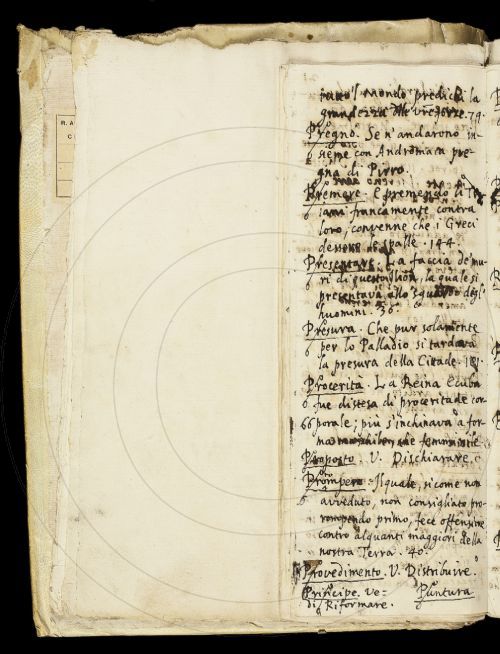 tutto'l mondo predichi la
grandezza delle vre forze. 79.
Pregno. Se n'andarono in-
sieme con Andromaca pre-
gna di Pirro.
Premere. E premendo i Tro
iani francamente contra
loro, convenne che i Greci
dessono le spalle. 144
Presentare. La faccia de mu
ri di quest Ilion, la quale si
presentava allo sguardo degl'
huomini. 36.
Presura. Che pur solamente
per lo Palladio si tardava
la presura della Cittade. 181.
Procerità. La Reina Ecuba
fue distesa di proceritade cor
porale; più s'inchinava a for-
ma che femminile
Proposto. V. Dischiarare.
Prompere. Il quale, sicome non
avveduto, non consigliato pro-
rompendo primo, fece offensione
contro alquanti maggiori della
nostra Terra. 40.
Provedimento. V. Distribuire.
Principe. Ve- Puntura
di Riformare.
R. A
C